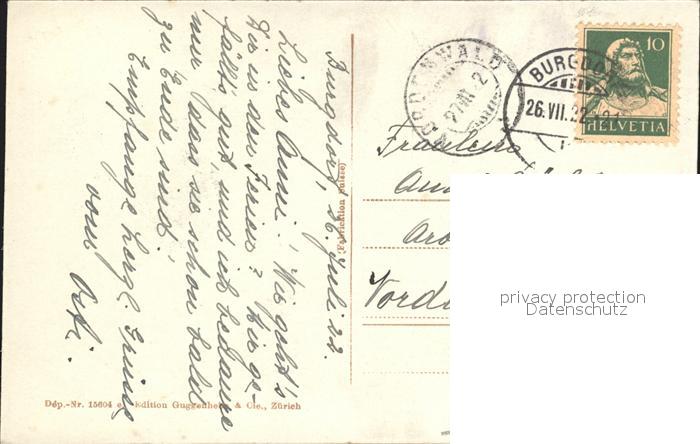 Burgdorf, 26. Juli 22.
Liebes Anni! Wie geht's
Dir in den Ferien? Hir ge-
fällts gut und ich bedaure
nur dass sie schon bald
zu Ende sind.
Empfange herzl. Grüsse
vom
(Fabrication Suisse)
Dép.-Nr. 15604 e. Edition Guggenheim & Cie., Zürich
VORDEMWALD
27. VII. 2
BURGDO
26. VII. 22
10
HELVETIA
Fräulein
Vord
privacy protection
Datenschutz